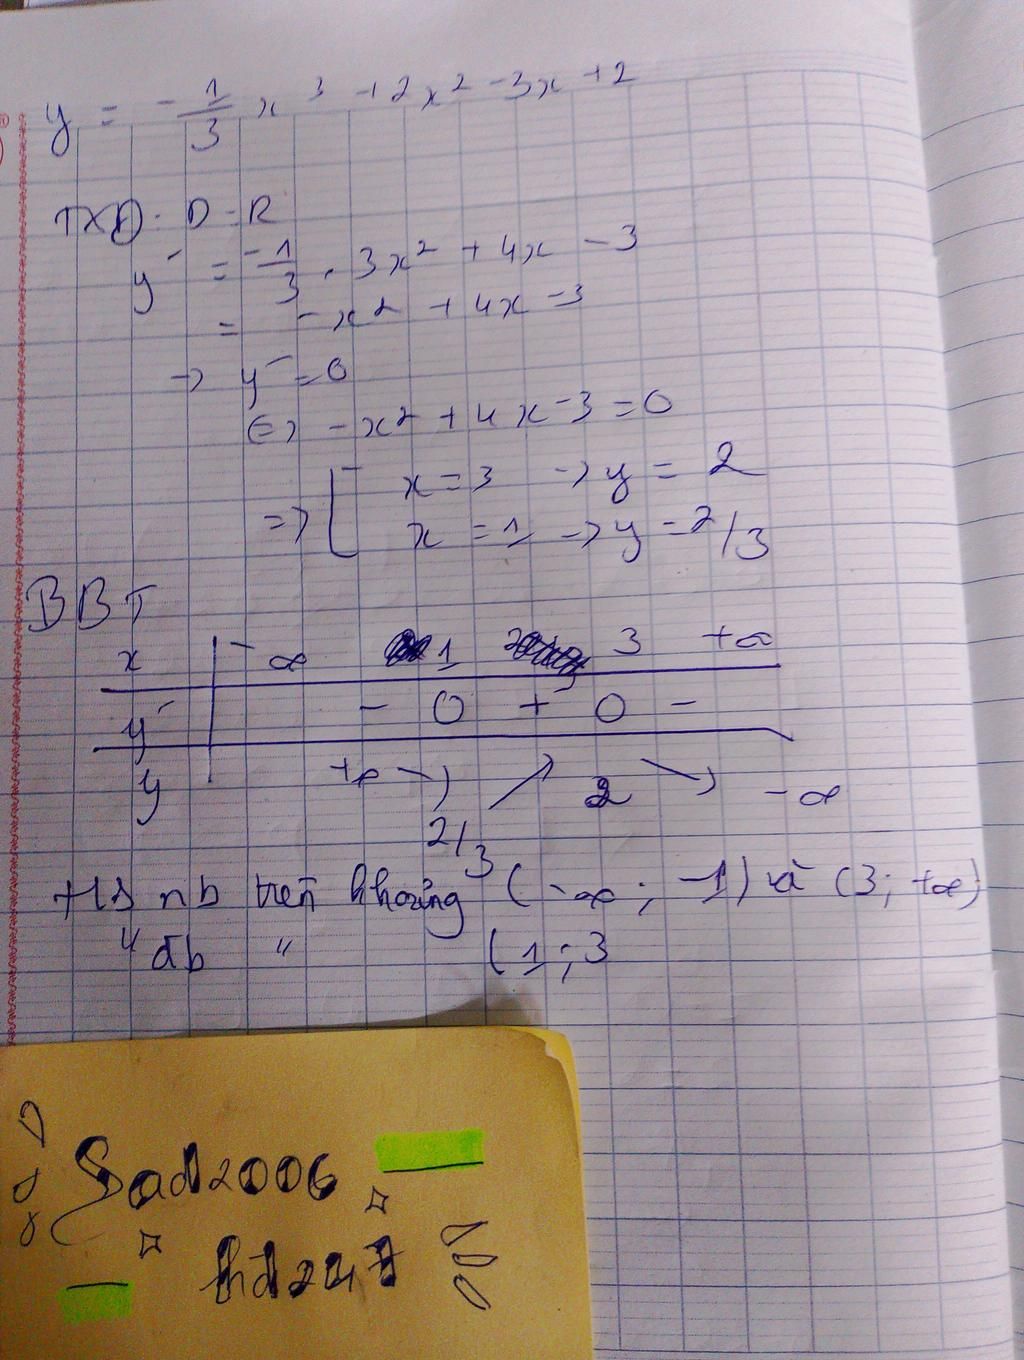 y = -1/3 x³ + 2x² - 3x + 2
TXĐ: D = R
y' = -1/3 . 3x² + 4x - 3
= -x² + 4x - 3
→ y' = 0
⇔ -x² + 4x - 3 = 0
=> [ x = 3 → y = 2
x = 1 → y = 2/3
BBT
x | -∞ 1 3 +∞
y' | - 0 + 0 -
y | +∞ ↘ 2/3 ↗ 2 ↘ -∞
HS nb trên khoảng (-∞; -1) và (3; +∞)
" đb " (1; 3
Sad2006
hd247